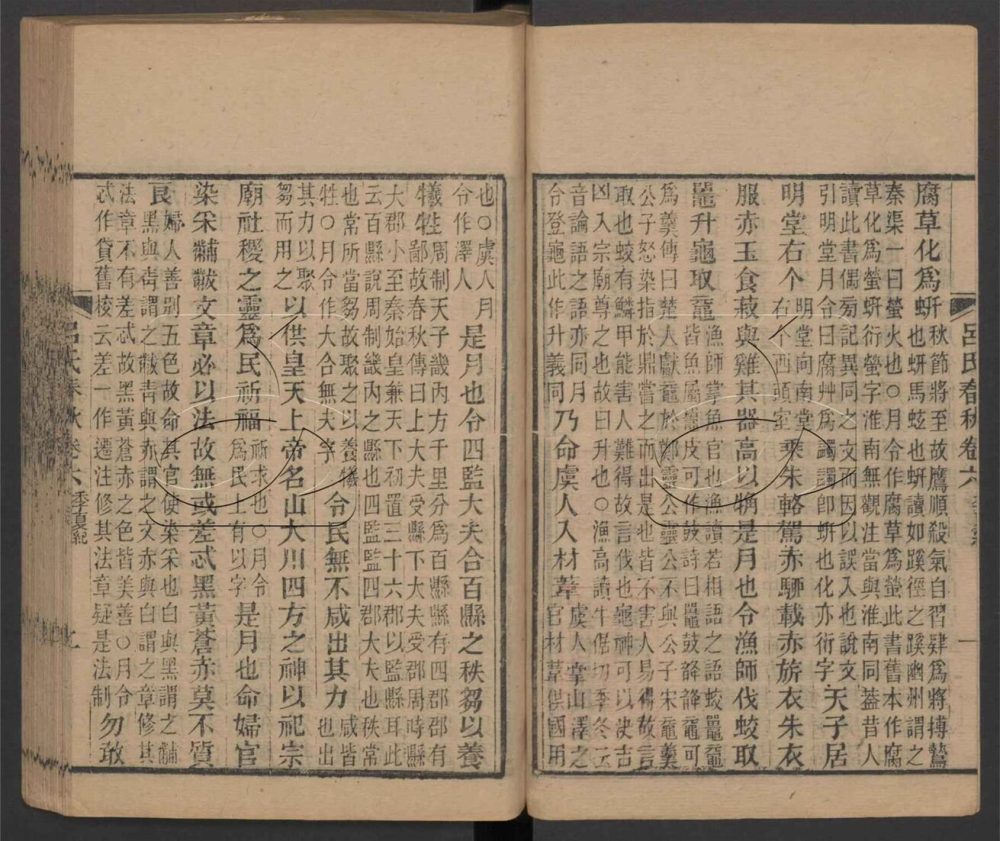 腐草化爲蚈秋節將至故鷹順殺氣自習肆爲將搏鷙
也蚈馬蚿也蚈讀如蹊徑之蹊幽州謂之
秦渠一曰螢火也○月令作腐草爲螢此書舊本作腐
草化爲螢蚈衍螢字淮南無觀注當與淮南同蓋昔人
讀此書偶旁記異同之文而因以誤入也說文
引明堂月令曰腐艸爲蠲蠲卽蚈也化亦衍字天子居
明堂右个明堂向南堂
右个西頭室乘朱輅駕赤駵載赤旂衣朱衣
服赤玉食菽與雞其器高以觕是月也令漁師伐蛟取
鼉升龜取黿漁師掌魚官也漁讀若相語之語蛟鼉黿
皆魚屬鼉皮可作鼓詩曰鼉鼓韸韸黿可
爲羹傳曰楚人獻黿於鄭靈公靈公不與公子宋黿羹
公子怒染指於鼎嘗之而出是也皆不害人易得故言
取也蛟有鱗甲能害人難得故言伐也龜神可以決吉
凶入宗廟尊之也故曰升也○漁高讀牛倨切季冬云
音論語之語亦同月
令登龜此作升義同乃命虞人入材葦虞人掌山澤之
官材葦供國用
呂氏春秋卷六
也○虞人月
令作澤人是月也令四監大夫合百縣之秩芻以養
犧牲周制天子畿內方千里分爲百縣縣有四郡郡有
鄙故春秋傳曰上大夫受縣下大夫受郡周時縣
大郡小至秦始皇兼天下初置三十六郡以監縣耳此
云百縣說周制畿內之縣也四監監四郡大夫也秩常
也常所當芻故聚之以養犧
牲○月令作大合無夫字令民無不咸出其力咸皆
也出
其力以聚
芻而用之以供皇天上帝名山大川四方之神以祀宗
廟社稷之靈爲民祈福祈求也○月令
爲民上有以字是月也命婦官
染采黼黻文章必以法故無或差忒黑黃蒼赤莫不質
良婦人善別五色故命其官使染采也白與黑謂之黼
黑與靑謂之黻靑與赤謂之文赤與白謂之章修其
法章不有差忒故黑黃蒼赤之色皆美善○月令
忒作貸舊校云差一作遷注修其法章疑是法制勿敢
呂氏春秋卷六季夏紀